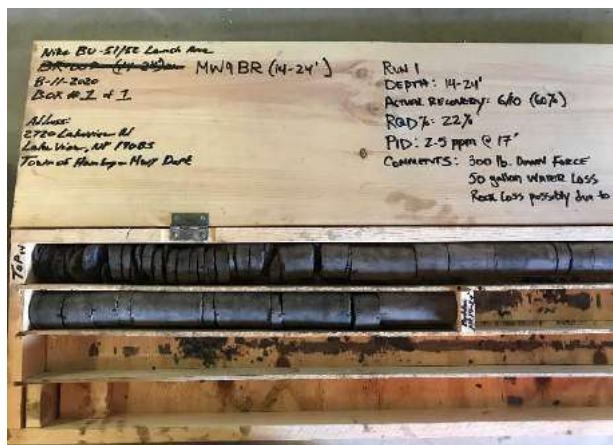 Nike BU-51/52 Launch Area
BR-MW9 (14-24') MW9BR (14-24')
8-11-2020
BOX # 1 of 1
Address:
2720 Lakeview Rd
Lake View, NY 14085
Town of Hamburg - Hwy Dept
RUN 1
DEPTH: 14-24'
ACTUAL RECOVERY: 6/10 (60%)
RQD%: 22%
PID: 2.5 ppm @ 17'
COMMENTS: 300 lb. DOWN FORCE
50 gallon WATER LOSS
Rock Loss possibly due to
TOP